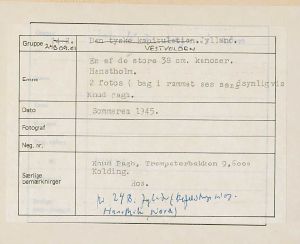 Gruppe 24B 09.01 Den tyske kapitulation. Jylland.
VESTVOLDEN
En af de store 38 cm. kanoner.
Hanstholm.
Emne 2 fotos ( bag i rammet ses
Knud
Dato Sommeren 1945.
Fotograf
Neg. nr.
Knud Bagh, Trompeterbakken 9, 6000
Særlige Kolding.
bemærkninger Hos.
24B. Jylland
Hanstholm Nord)